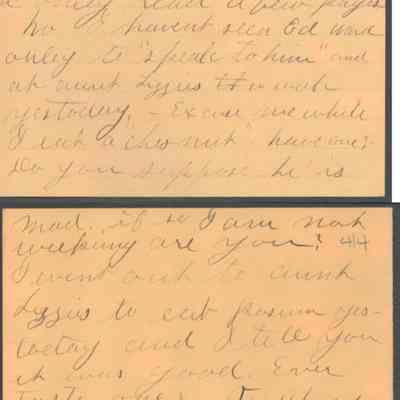 only read a few pages
No I havent seen Ed Ward
onley to "speak to him" and
at aunt Lyzies
yestoday. - Excuse me while
I eat a "chesnut" have one?
Do you suppose he is
mad. if so I am not
weeping are you? 44
I went out to aunt
Lyzies to eat posum yes-
today and I tell you
it was good. Ever